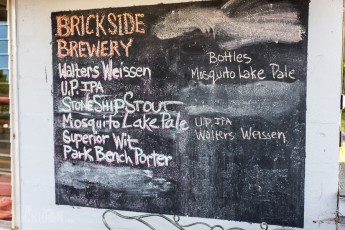 BRICKSIDE
BREWERY
Walters Weissen
U.P. IPA
STONESHIP STOUT
Mosquito Lake Pale
Superior Wit
Park Bench Porter
Bottles
Mosquito Lake Pale
U.P. IPA
Walters Weissen